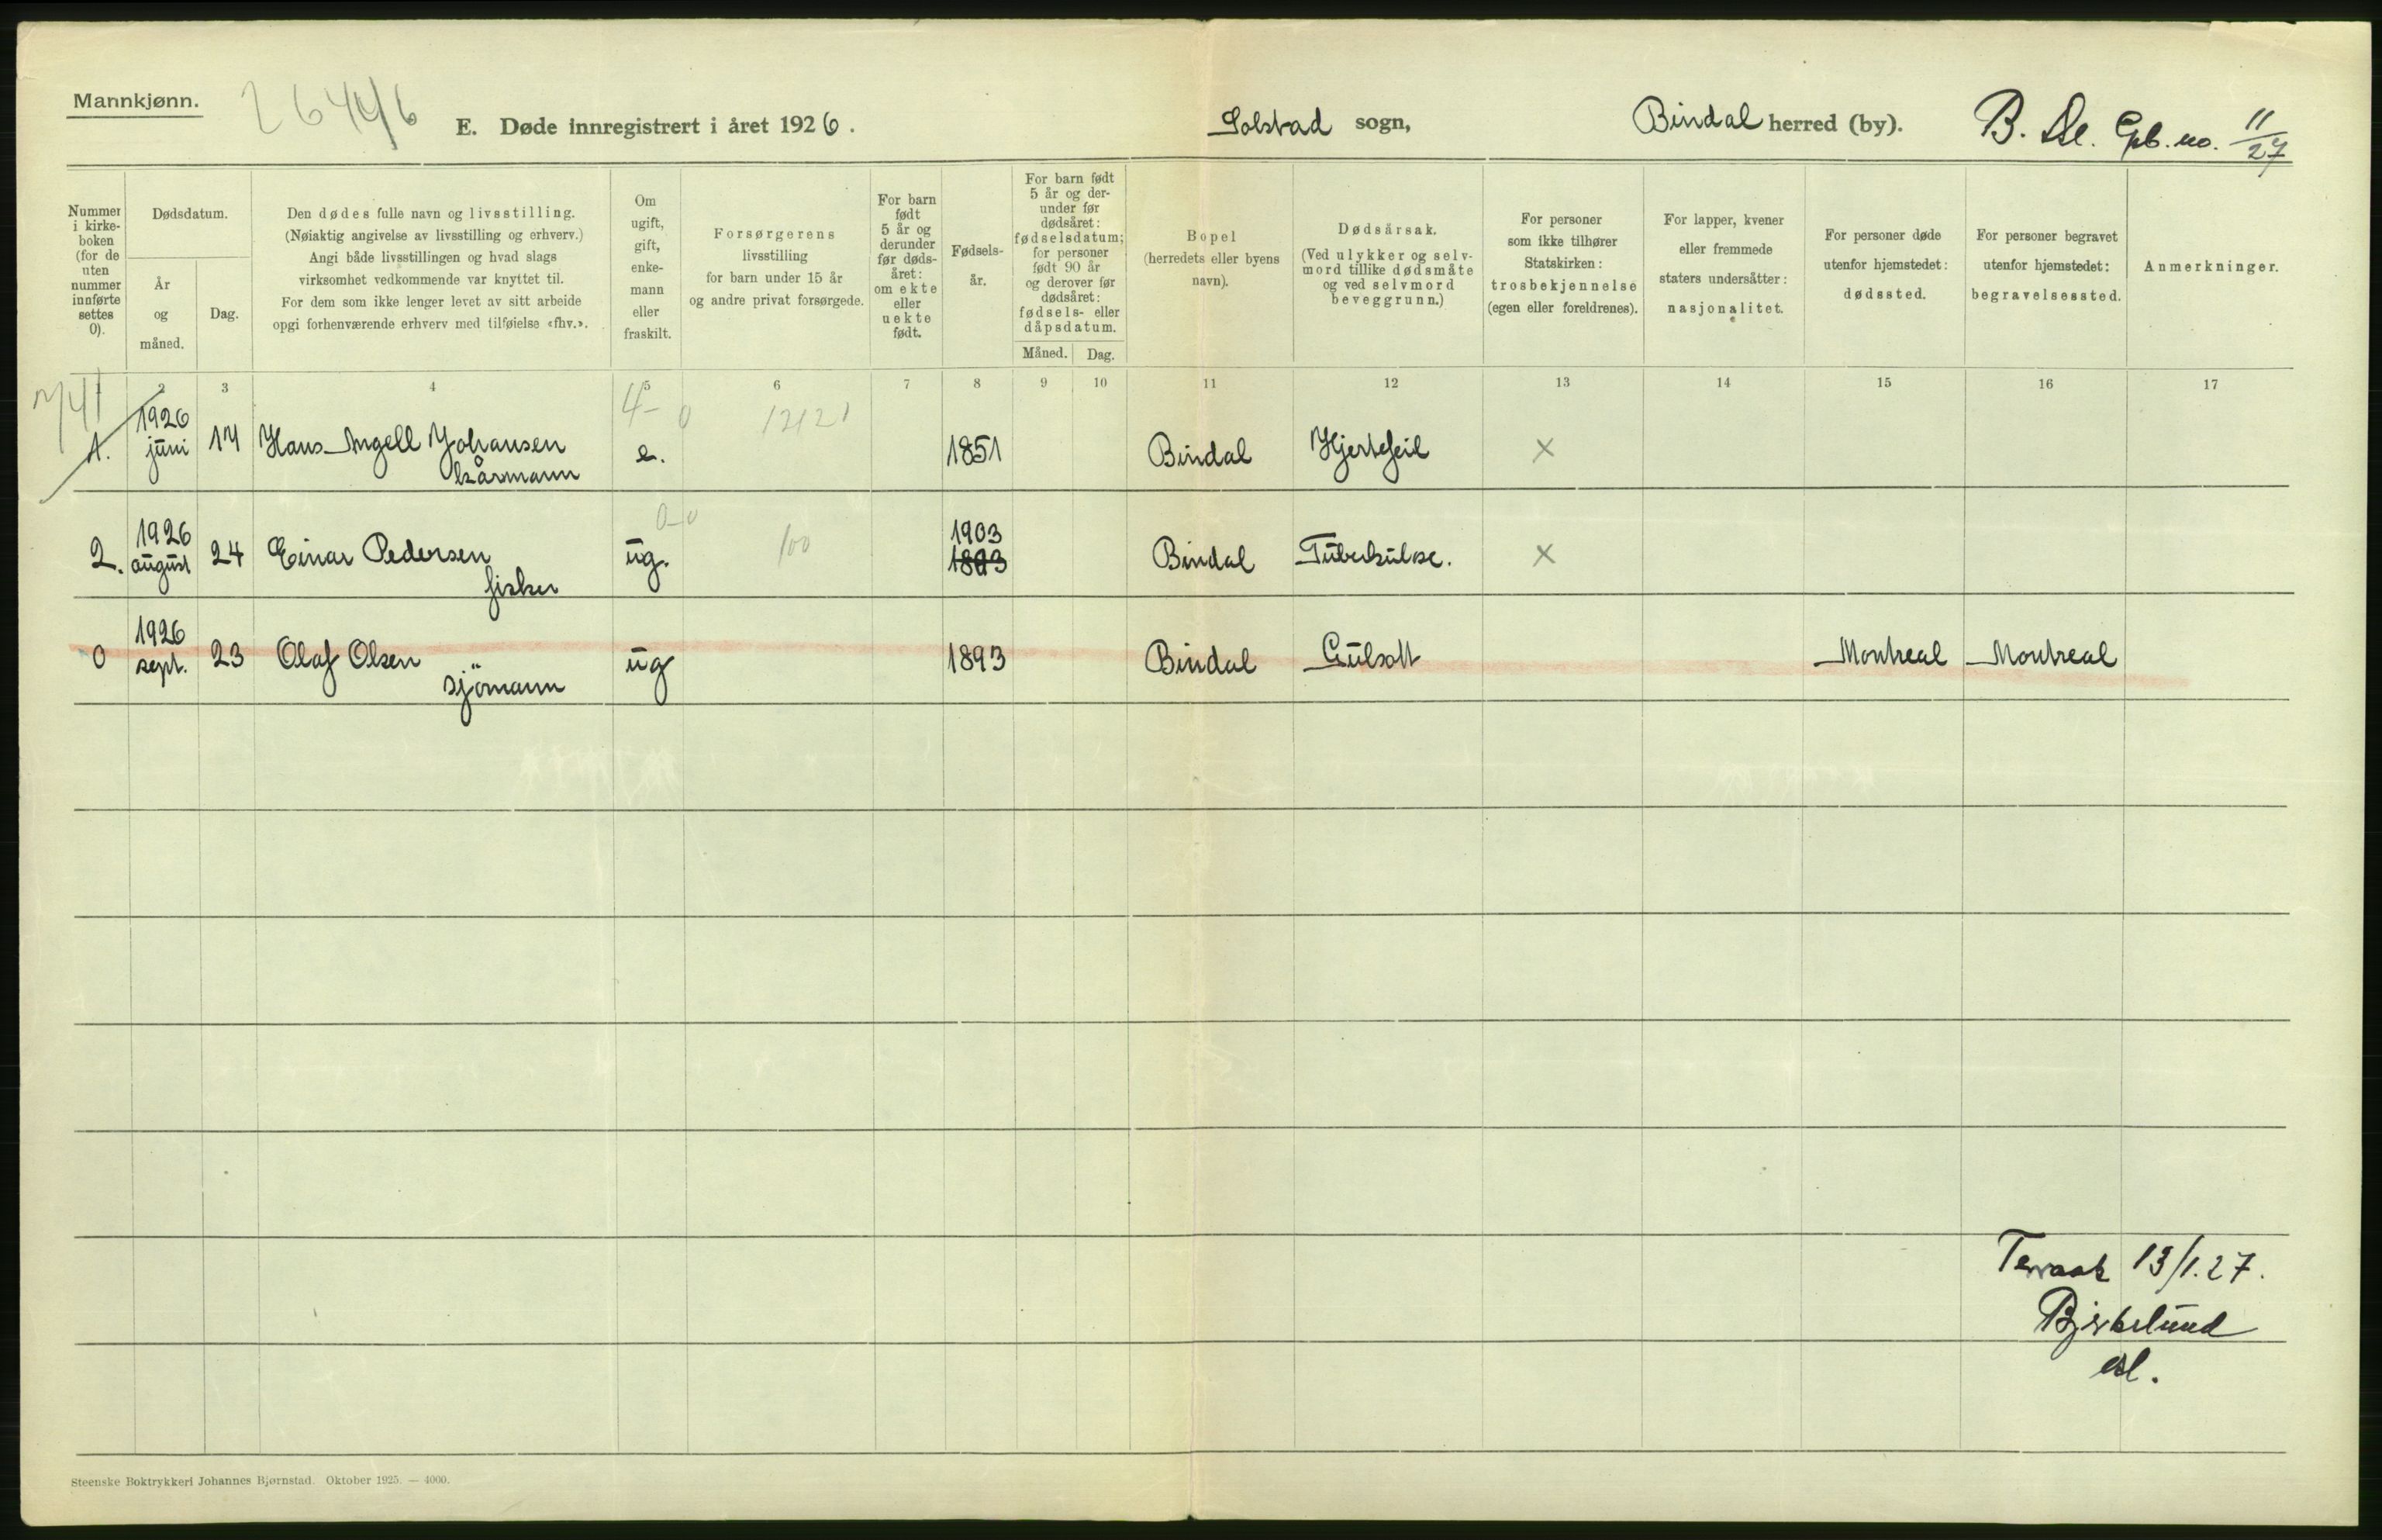 Mannkjønn.
26446
E. Døde innregistrert i året 1926.
Solstad sogn,
Bindal herred (by).
Gpb. no. 11/27
Nummer i kirke- boken (for de uten nummer innførte settes 0).
Dødsdatum.
År og måned.
Dag.
Den dødes fulle navn og livsstilling.
(Nøiaktig angivelse av livsstilling og erhverv.)
Angi både livsstillingen og hvad slags
virksomhet vedkommende var knyttet til.
For dem som ikke lenger levet av sitt arbeide
opgi forhenværende erhverv med tilføielse «fhv.».
Om ugift, gift, enke- mann eller fraskilt.
Forsørgerens
livsstilling
for barn under 15 år
og andre privat forsørgede.
For barn født 5 år og derunder før døds- året: om ekte eller uekte født.
Fødsels- år.
For barn født 5 år og der- under før dødsåret: fødselsdatum; for personer født 90 år og derover før dødsåret: fødsels- eller dåpsdatum.
Måned. Dag.
Bopel
(herredets eller byens
navn).
Dødsårsak.
(Ved ulykker og selv-
mord tillike dødsmåte
og ved selvmord
beveggrunn.)
For personer
som ikke tilhører
Statskirken:
trosbekjennelse
(egen eller foreldrenes).
For lapper, kvener
eller fremmede
staters undersåtter:
nasjonalitet.
For personer døde
utenfor hjemstedet:
dødssted.
For personer begravet
utenfor hjemstedet:
begravelsessted.
Anmerkninger.
1 2 3 4 5 6 7 8 9 10 11 12 13 14 15 16 17
1. 1926 juni 14 Hans Angell Johansen kårmann e. 1851 Bindal Hjertefeil ×
2. 1926 august 24 Einar Pedersen fisker ug. 100 1903 1893 Bindal Tuberkulose. ×
0 1926 sept. 23 Olaf Olsen sjömann ug 1893 Bindal Gulsott Montreal Montreal
Terraak 13/1.27.
Bjirkelund
Steenske Boktrykkeri Johannes Bjørnstad. Oktober 1925. — 4000.